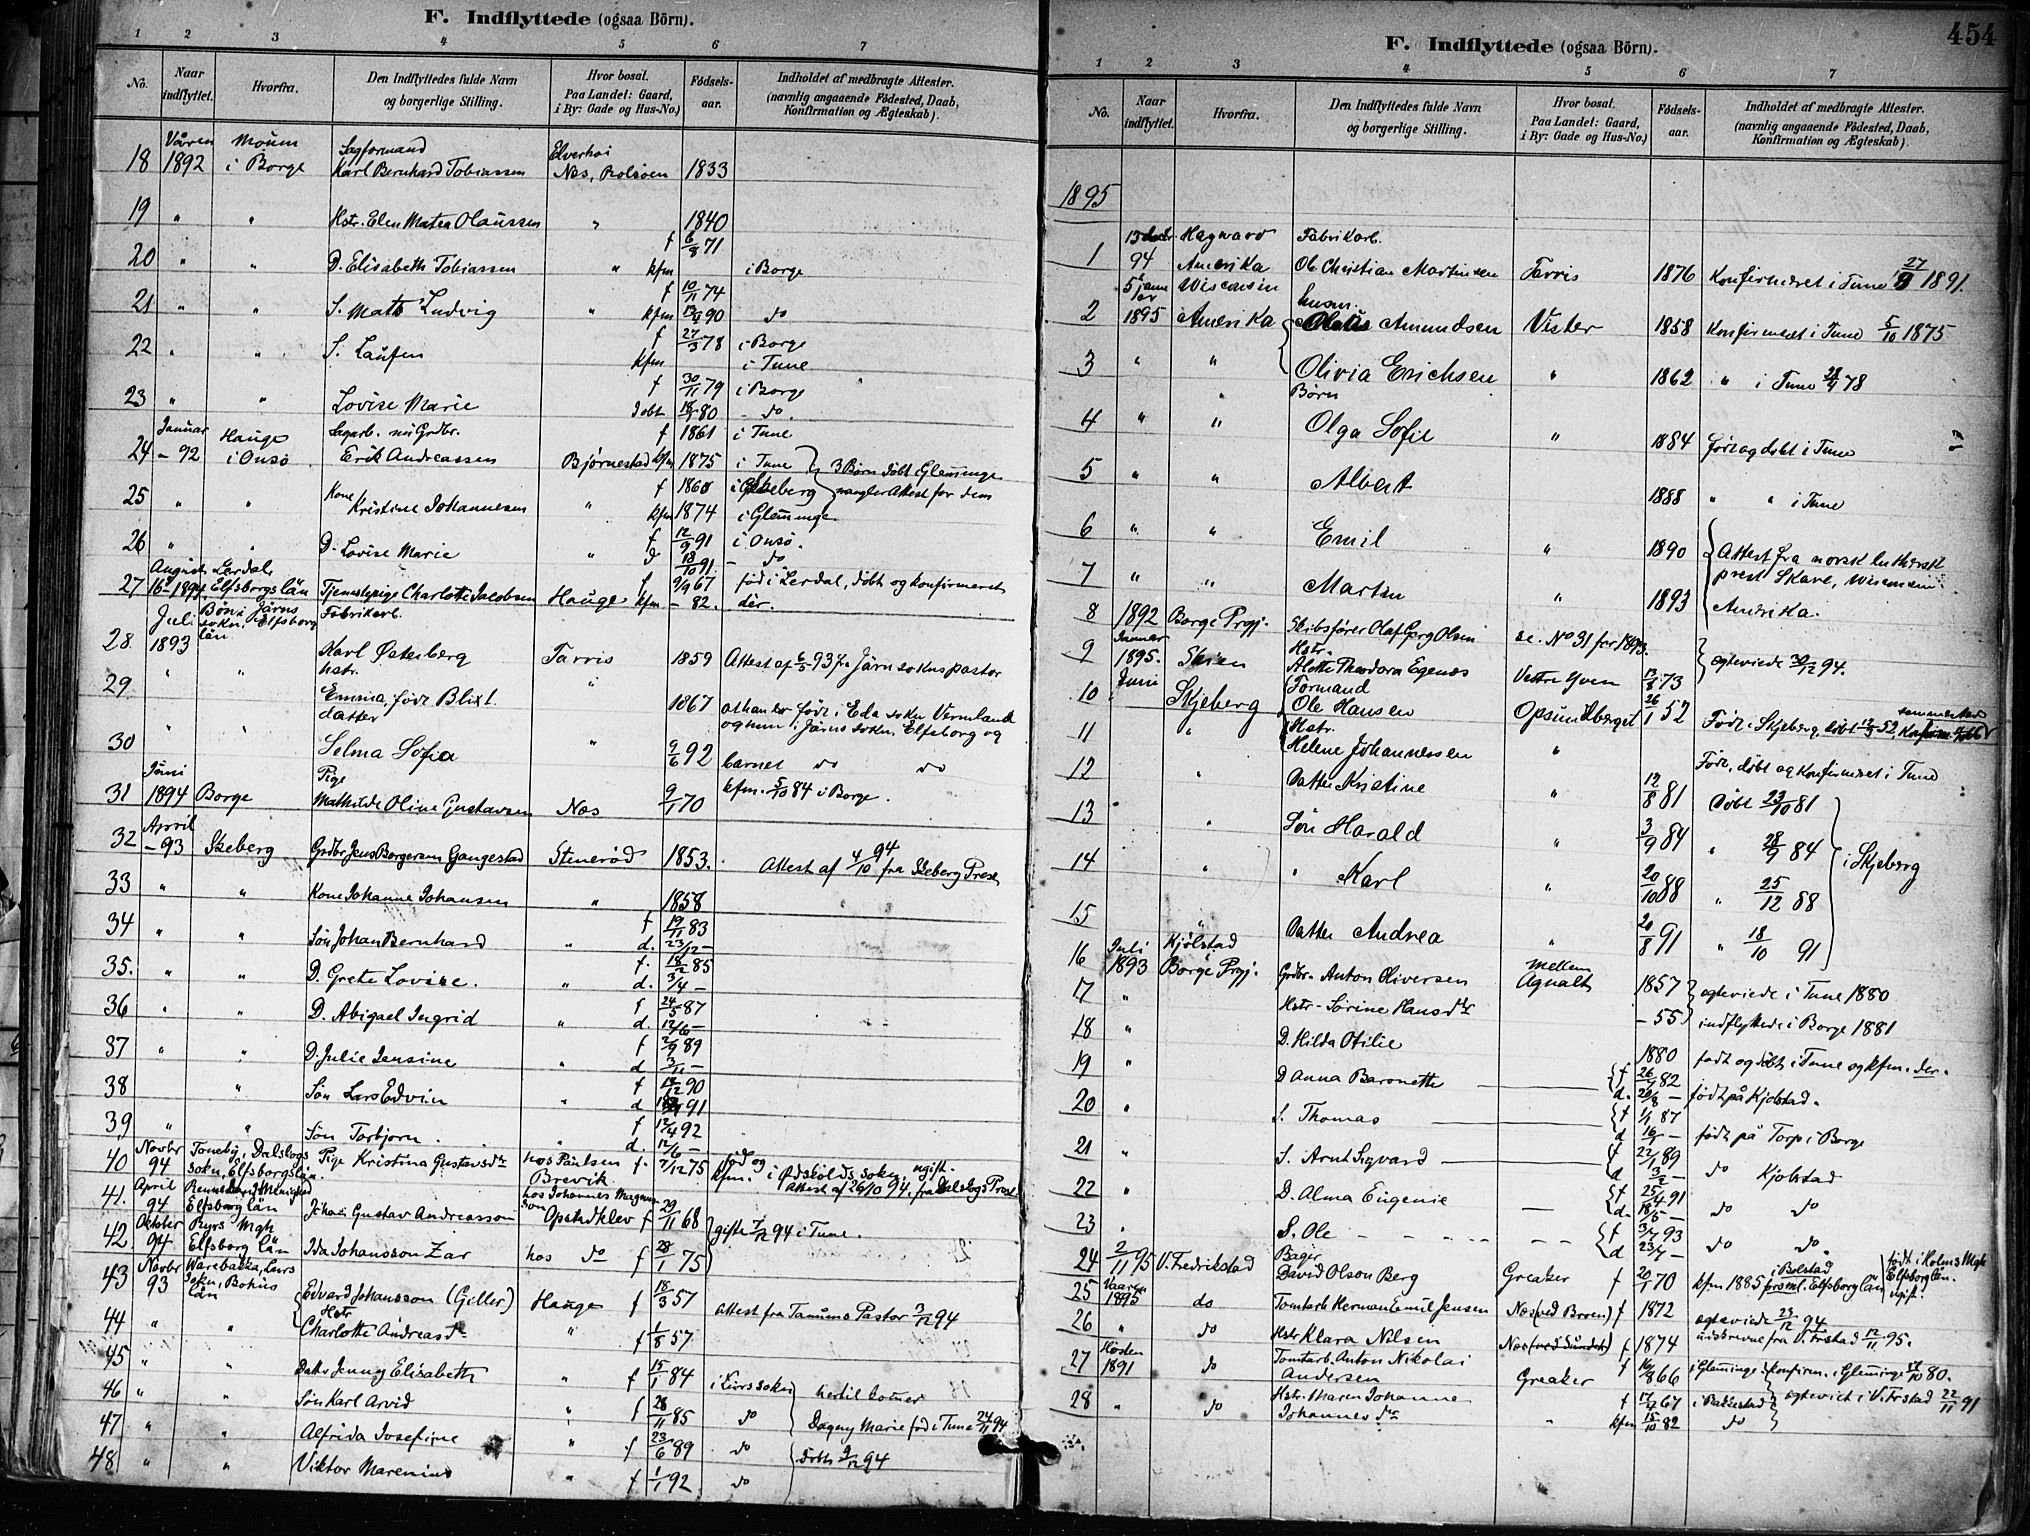 F. Indflyttede (ogsaa Börn).
1 2 3 4 5 6 7
No. Naar indflyttet. Hvorfra. Den Indflyttedes fulde Navn og borgerlige Stilling. Hvor bosat. Paa Landet: Gaard, i By: Gade og Hus-No.) Fødsels-aar. Indholdet af medbragte Attester. (navnlig angaaende Fødested, Daab, Konfirmation og Ægteskab).
Våren Moum Sagformand Elverhøi
18 1892 i Borge Karl Bernhard Tobiassen Næs, Rolsøen 1833
19 " " Hstr. Elen Matea Olaussen " 1840
f 6/8 71
20 " " D. Elisabeth Tobiassen " kfm i Borge
f 10/11 74
21 " " S. Mats Ludvig " kfm 90 do
f 27/3 78 i Borge
22 " " S. Laufen kfm i Tune
f 30/11 79 i Borge
23 " " Lovise Marie döbt 80 - do.
Januar Hauge Sagarb. nu Grdbr. f 1861 i Tune
24 - 92 i Onsø Erik Andreassen Bjørnestad kfm 1875 i Tune 3 Børn døbt i Glemminge
f 1860 i Skeberg mangler Attest for dem
25 " " Kone Kristine Johannesen " kfm 1874 i Glemminge
26 " " D. Lovise Marie " f 12/9 91 i Onsø.
d 18/10 91 - do
August Lerdal,
27 16- 1894 Elfsborgs län Tjenestepige Charlotte Jacobsen Hauge f 9/9 67 född i Lerdal, döbt og konfirmeret
kfm - 82. der.
Juli Bön i Järns sokn, Elfsborg län Fabrikarb.
28 1893 Karl Østerberg Tarris 1859 Attest af 6/5 93 fra Järn sokns pastor
29 " " hstr. Emma, födt Blixt. " 1867 at han er født i Eda sokn Vermland
og hun i Järns sokn, Elfsborg og
30 " " datter Selma Sofia " 9/6 92 barnet do do
Juni Pige
31 1894 Borge Mathilde Oline Gustavsen Næs 9/1 70 kfm. 5/10 84 i Borge.
April
32 - 93 Skeberg Grdbr Jens Borgersen Gangestad Stenerød 1853. Attest af 4/10 94 fra Skeberg Prest
33 " " Kone Johanne Johansen " 1858
34 " " Søn Johan Bernhard " f 19/11 83
d. 23/12 -
35. " " D. Grete Lovise. " f. 18/2 85
d. 3/4 -
36 " " D. Abigael Ingrid " f 24/5 87
d. 12/6 -
37 " " D. Julie Jensine " f 2/9 89
d 3/11 -
38 " Søn Lars Edvin " f 14/12 90
d 91
39 " " Søn Torbjørn. " f 17/4 92
d. 12/6 -
40 Novbr 94 Tøneby, Dalskogs sokn, Elfsborgs län Pige Kristina Gustavsdtr hos Paulsen Brevik f. 7/12 75 född og kfm. i Ødskölds sokn, ugift.
Attest af 26/10 94. fra Dalskogs Prest
41. April 94 Elfsborg län Johan Gustav Andreasson hos Johannes Magnusson Opstadklev f 29/11 68 gifte 7/12 94 i Tune.
42. Oktober 94 Ryrs Mgh Elfsborg län Ida Johansson Zar hos do f 28/1 75
43 Novbr 93 Warebacka, Kurs Sokn, Bohus län Edvard Johansson (Geller) Hauge f 18/3 57 attest fra Tanums Pastor 3/12 94
44 " " Hstr Charlotte Andreasdr " f 1/8 57
45 " " Datter Jenny Elisabeth " f 15/1 84 i Kurs sokn hertil kommer
46 " " Søn Karl Arvid " f 28/11 85 do Dagny Marie fød i Tune 24/11 94
47 " " Alfrida Josefine " f 23/6 89 do döbt 9/12 94
48 " " Viktor Marenius " f 1/1 92 do
454
F. Indflyttede (ogsaa Börn).
1 2 3 4 5 6 7
No. Naar indflyttet. Hvorfra. Den Indflyttedes fulde Navn og borgerlige Stilling. Hvor bosat. Paa Landet: Gaard, i By: Gade og Hus-No.) Fødsels-aar. Indholdet af medbragte Attester. (navnlig angaaende Fødested, Daab, Konfirmation og Ægteskab).
1895
1 13 decbr 94 Hagward Amerika Fabrikarb. Ole Christian Martinsen Tarris 1876 Konfirmeret i Tune 27/9 1891.
2 5 januar 1895 Wisconsin Amerika husm. Olaus Amundsen Vister 1858 Konfirmeret i Tune 5/10 1875
3 " " Olivia Erichsen " 1862 " i Tune 78
Børn
4 " " Olga Sofie " 1884 født og døbt i Tune
5 " " Albert 1888 " " i Tune
6 " " Emil " 1890 Attest fra norsk luthersk
7 " " Martin " 1893 prest Skare, Wisconsin
Amerika.
8 1892 Borge Prgj. Skibsfører Olaf Georg Olsen se. No 31 for 1893.
9 Januar 1895. Skien Hstr. Alette Theodora Egenæs Vestre Yven 13/8 73 egteviede 30/12 94.
10 Juni Skjeberg Formand Ole Hansen Opsund berget 26/1 52 Født i Skjeberg døbt 12/3 52
11 " Hstr. Helene Johannessen " Født, døbt og konfirmeret i Tune
12 " Datter Kristine " 12/8 81 Døbt 23/10 81
13 " Søn Harald " 3/9 84 " 28/9 84 i Skjeberg
14 " " Karl " 20/10 88 " 25/12 88
15 " Datter Andrea " 20/8 91 " 18/10 91
16 Juli 1893 Kjølstad Borge Prgj. Grdbr. Anton Oliversen Mellem Agnalt 1857 egteviede i Tune 1880
17 " Hstr - Sørine Hansdtr - 55 indflyttede i Borge 1881
18 " D. Hilda Otilie 1880 født og døbt i Tune og kfm. der.
19 " D Anna Baronette f 26/ 82
d. 20/8 - født på Kjølstad.
20 " S. Thomas f 1/1 87
d 16/ - født på Torp i Borge
21 " S. Arnt Sigvard f 22/1 89
d 3/2 - do Kjølstad
22 " D. Alma Eugenie f 25/4 91
d. 18/5 - do do
23 " S. Ole f 3/7 93
d 23/7 - do do
24 2/11 95 V. Fredrikstad Bager David Olson Berg Greaker f 20/1 70 kfm 1885 i Bolstad Elfsborg län født i Holms Mgh Elfsborg län. ugift.
25 Vaaren 1895 do Tomtarb Herman Emil Jensen Næs (ved Broen) f 1872 egteviede 23/12 94
26 " do Hstr Klara Nilsen Næs (ved Sundet) f 1874 udskrevne fra V. Frstad 12/11 95.
27 Høsten 1891 do Tomtarb. Anton Nikolai Andersen Greaker f 16/8 66 i Glemminge konfirm. i Glemminge 80.
28 " do Hstr. Maren Johanne Johannesdtr " f 17/2 67 i Rakkestad egteviet i V. Frstad 22/11 91
kfm 15/10 82 do